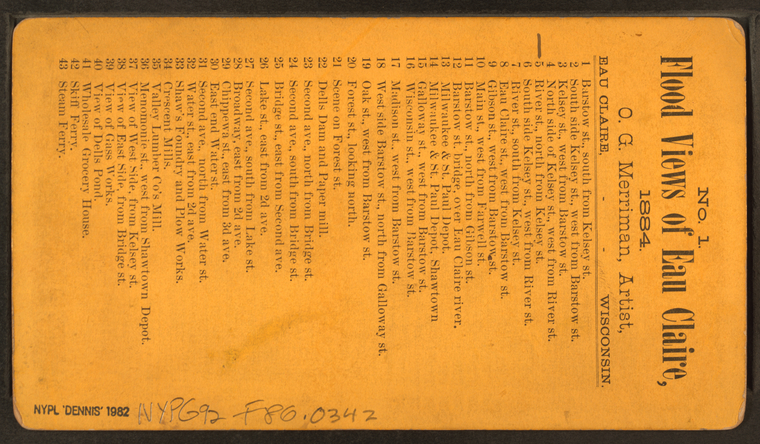 No. 1.
Flood Views of Eau Claire,
1884.
O. G. Merriman, Artist,
EAU CLAIRE, - - WISCONSIN.
1 Barstow st., south from Kelsey st.
2 South side Kelsey st., west from Barstow st.
3 Kelsey st., west from Barstow st.
4 North side of Kelsey st., west from River st.
5 River st., north from Kelsey st.
6 South side Kelsey st., west from River st.
7 River st., south from Kelsey st.
8 Eau Claire st., west from Barstow st.
9 Gibson st., west from Barstow st.
10 Main st., west from Farwell st.
11 Barstow st., north from Gibson st.
12 Barstow st. bridge, over Eau Claire river.
13 Milwaukee & St. Paul Depot.
14 Milwaukee & St. Paul Depot, Shawtown
15 Galloway st., west from Barstow st.
16 Wisconsin st., west from Barstow st.
17 Madison st., west from Barstow st.
18 West side Barstow st., north from Galloway st.
19 Oak st., west from Barstow st.
20 Forest st., looking north.
21 Scene on Forest st.
22 Dells Dam and Paper mill.
23 Second ave., north from Bridge st.
24 Second ave., south from Bridge st.
25 Bridge st., east from Second ave.
26 Lake st., east from 2d ave.
27 Second ave., south from Lake st.
28 Broadway, east from 2d ave.
29 Chippewa st., east from 3d ave.
30 East end Water st.
31 Second ave., north from Water st.
32 Water st., east from 2d ave.
33 Shaw's Foundry and Plow Works.
34 Crescent Mills.
35 Valley Lumber Co's Mill.
36 Menomonie st., west from Shawtown Depot.
37 View of West Side, from Kelsey st.
38 View of East Side, from Bridge st.
39 View of Gass Works.
40 View of Dells Pond.
41 Wholesale Grocery House.
42 Skiff Ferry.
43 Steam Ferry.
NYPL 'DENNIS' 1982
NYPG92-F86.0342